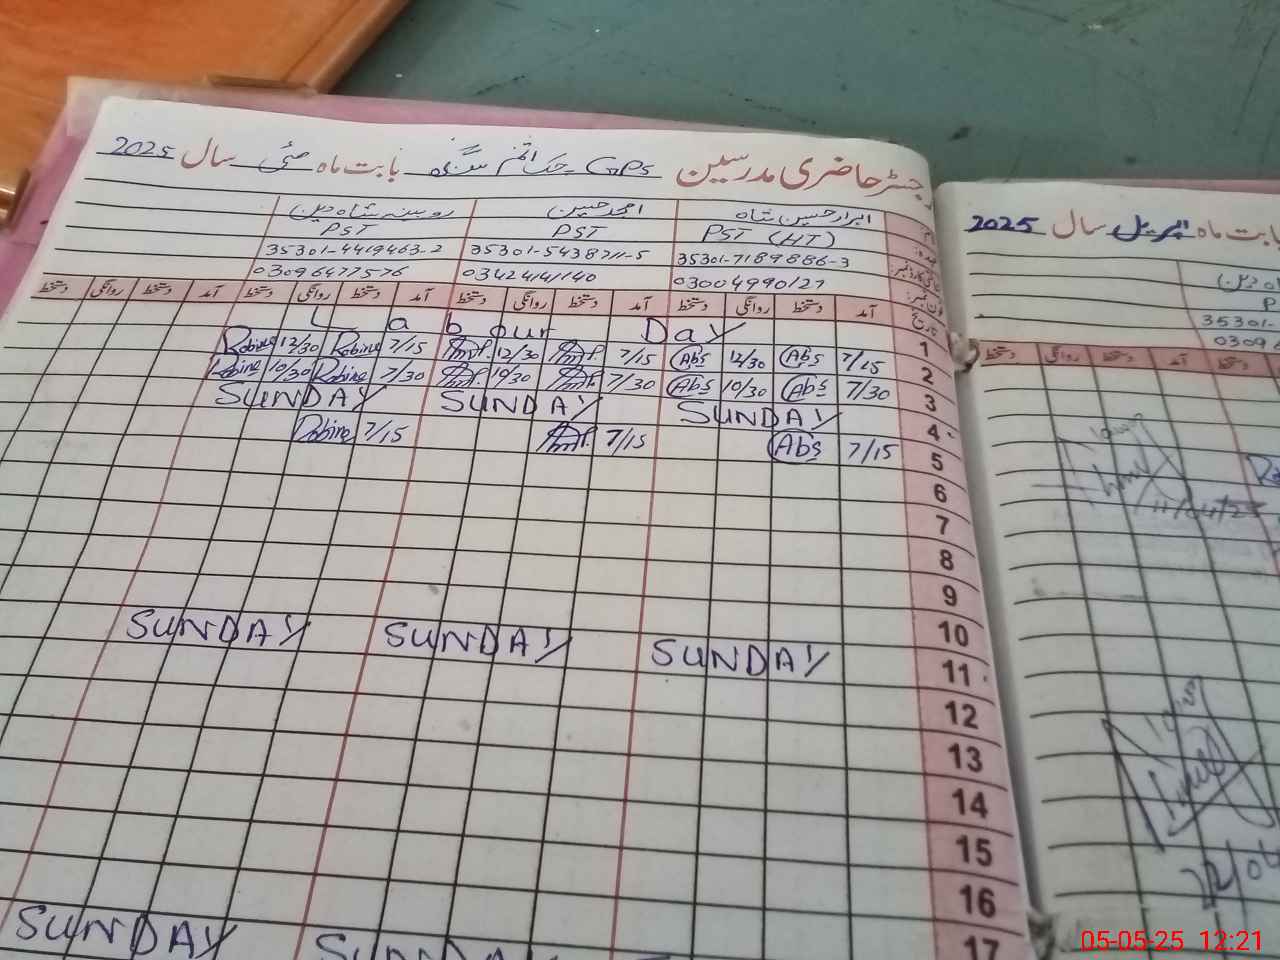 رجسٹر حاضری مدرسین GPS حکم سنگھ بابت ماہ مئی سال 2025
ابرار حسین شاہ امجد حسین روبینہ شاہ دین
PST (HT) PST PST
35301-7189886-3 35301-5438711-5 35301-4419463-2
03004990127 03424141140 03096477576
تاریخ آمد دستخط روانگی دستخط آمد دستخط روانگی دستخط آمد دستخط روانگی دستخط آمد دستخط روانگی دستخط
1 Labour Day
2 7/15 Abs 12/30 Abs 7/15 12/30 7/15 Robina 12/30 Robina
3 7/30 Abs 10/30 Abs 7/30 10/30 7/30 Robina 10/30 Robina
4 SUNDAY SUNDAY SUNDAY
5 7/15 Abs 7/15 7/15 Robina
6
7
8
9
10
11 SUNDAY SUNDAY SUNDAY
12
13
14
15
16
17
SUNDAY SUNDAY
بابت ماہ اپریل سال 2025
35301-
0309
آمد دستخط روانگی دستخط
11/04/25
22/04
05-05-25 12:21